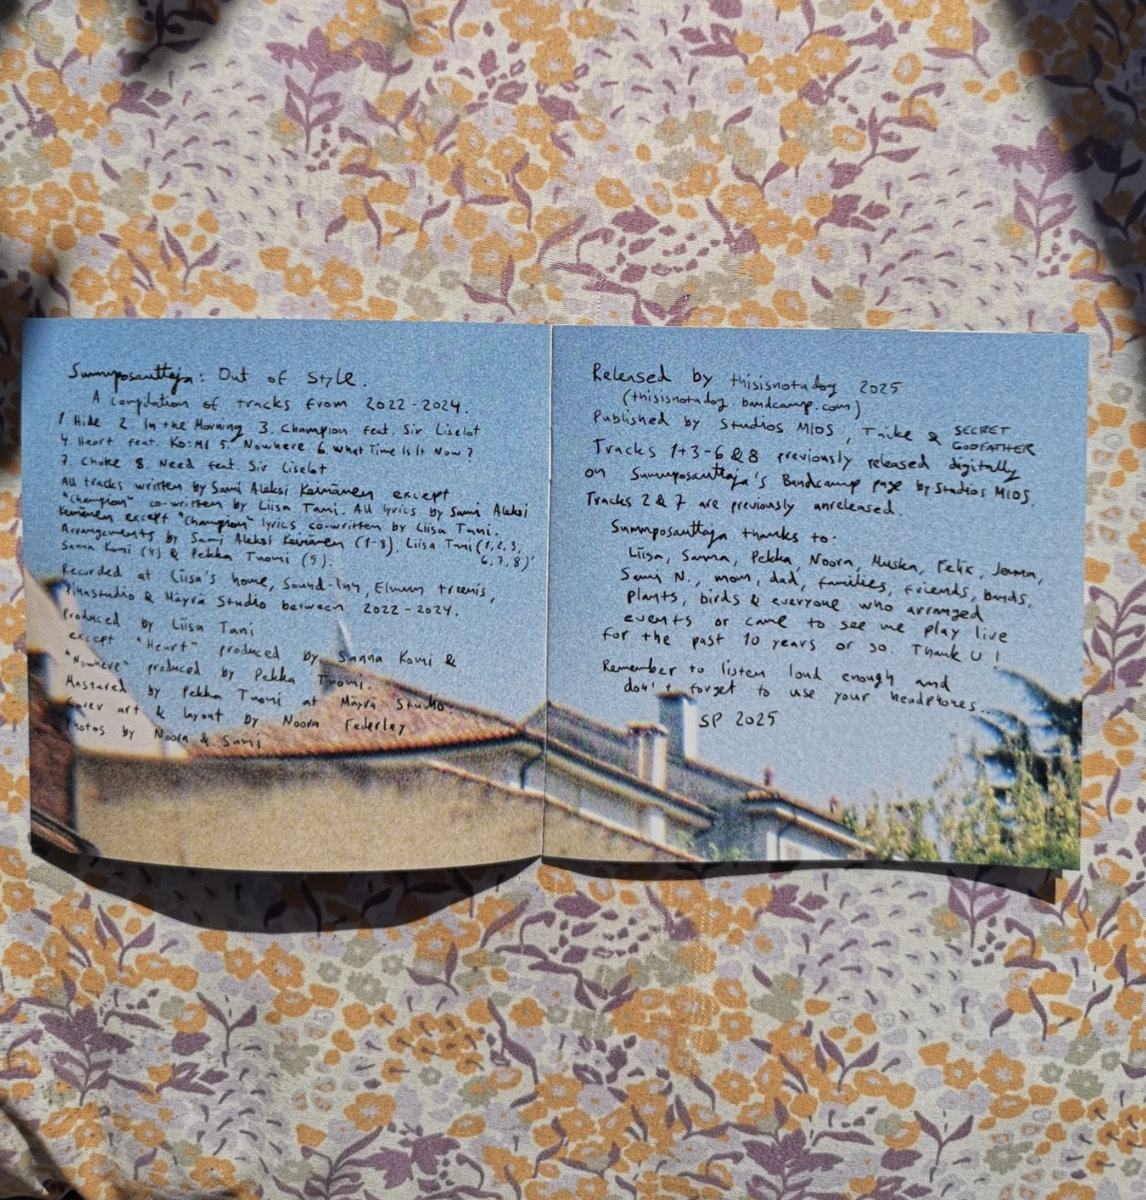 Sumuposauttaja: Out of Style.
A compilation of tracks from 2022-2024.
1. Hide 2. In the Morning 3. Champion feat. Sir Liselot
4. Heart feat. Ko:Mi 5. Nowhere 6. What Time Is It Now?
7. Choke 8. Need feat. Sir Liselot
All tracks written by Sami Aleksi Keinänen except
"Champion" co-written by Liisa Tani. All lyrics by Sami Aleksi
Keinänen except "Champion" lyrics co-written by Liisa Tani.
Arrangements by Sami Aleksi Keinänen (1-8), Liisa Tani (1,2,3,
6,7,8),
Sanna Komi (4) & Pekka Tuomi (5).
Recorded at Liisa's home, Sound-Inn, Elmun treenis,
Pihastudio & Mäyrä Studio between 2022-2024.
Produced by Liisa Tani
except "Heart" produced by Sanna Komi &
"Nowhere" produced by Pekka Tuomi.
Mastered by Pekka Tuomi at Mäyrä Studio.
Cover art & layout by Noora Federley
Photos by Noora & Sami
Released by thisisnotadog 2025
(thisisnotadog.bandcamp.com)
Published by Studios MIOS, &
SECRET
GODFATHER
Tracks 1+3-6 & 8 previously released digitally
on Sumuposauttaja's Bandcamp page by Studios MIOS.
Tracks 2 & 7 are previously unreleased.
Sumuposauttaja thanks to:
Liisa, Sanna, Pekka, Noora, Miska, Felix, Jorma,
Sami N., mom, dad, families, friends, bands,
plants, birds & everyone who arranged
events or came to see me play live
for the past 10 years or so. Thank U!
Remember to listen loud enough and
don't forget to use your headphones...
SP 2025